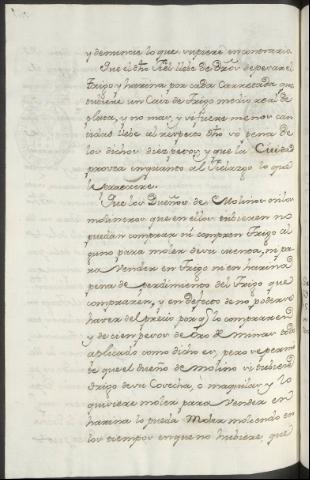 y denuncie lo que supiere en contrario.
Que el dho fiel llebe de dros de pesar el
trigo y harina por cada Carretada que
tubiere un Caiz de trigo medio real de
plata, y no mas, y si fuere menor can
tidad llebe al respecto dho so pena de
los dichos diez pesos, y que la Ciudad
provea en quanto al lo que
le pareciere.
Que los Dueños de Molino ni los
molineros que en ellos tubieren no
puedan comprar ni compren trigo al
guno para moler de su cuenta, ni pa
ra vender en trigo ni en harina
pena de perdimiento del trigo que
compraren, y en defecto de no poderse
haver del precio por q. lo compraren
y de cien pesos de Oro de minas todo
aplicado como dicho es, pero se permi
te que el dueño de molino si tubiere
trigo de su Cosecha, o maquilas y lo
quisiere moler para vender en
harina lo pueda moler moliendo en
los tiempos en que no hubiere, que